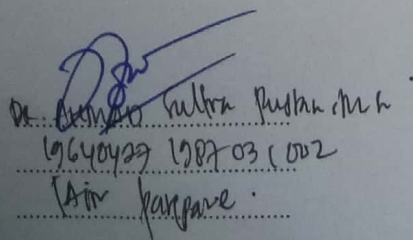 Dr. AHMAD Sultra Rustan, M.A
19640427 198703 1 002
IAIN Parepare.